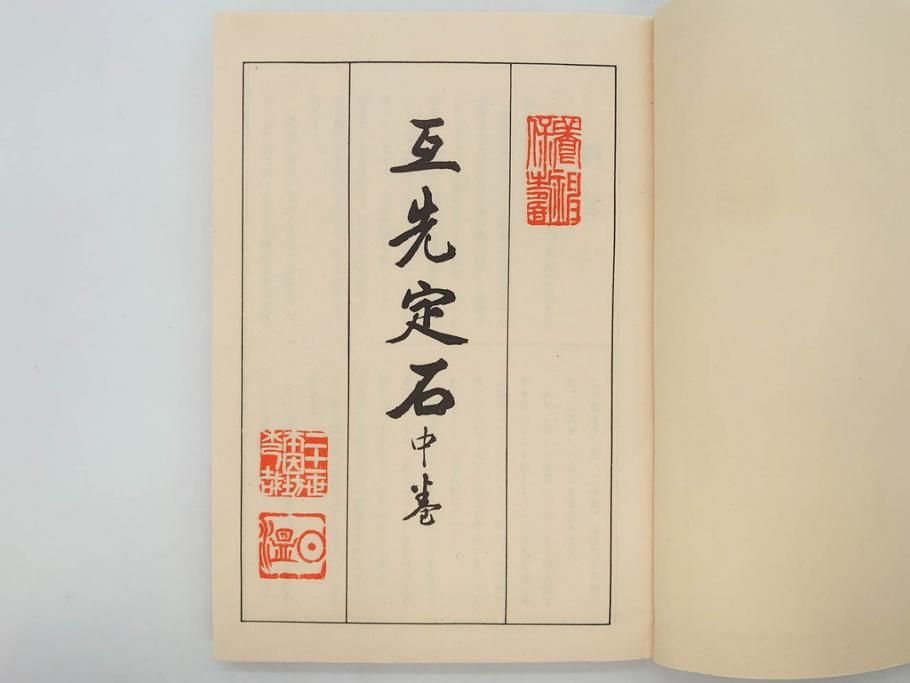 互先定石中巻